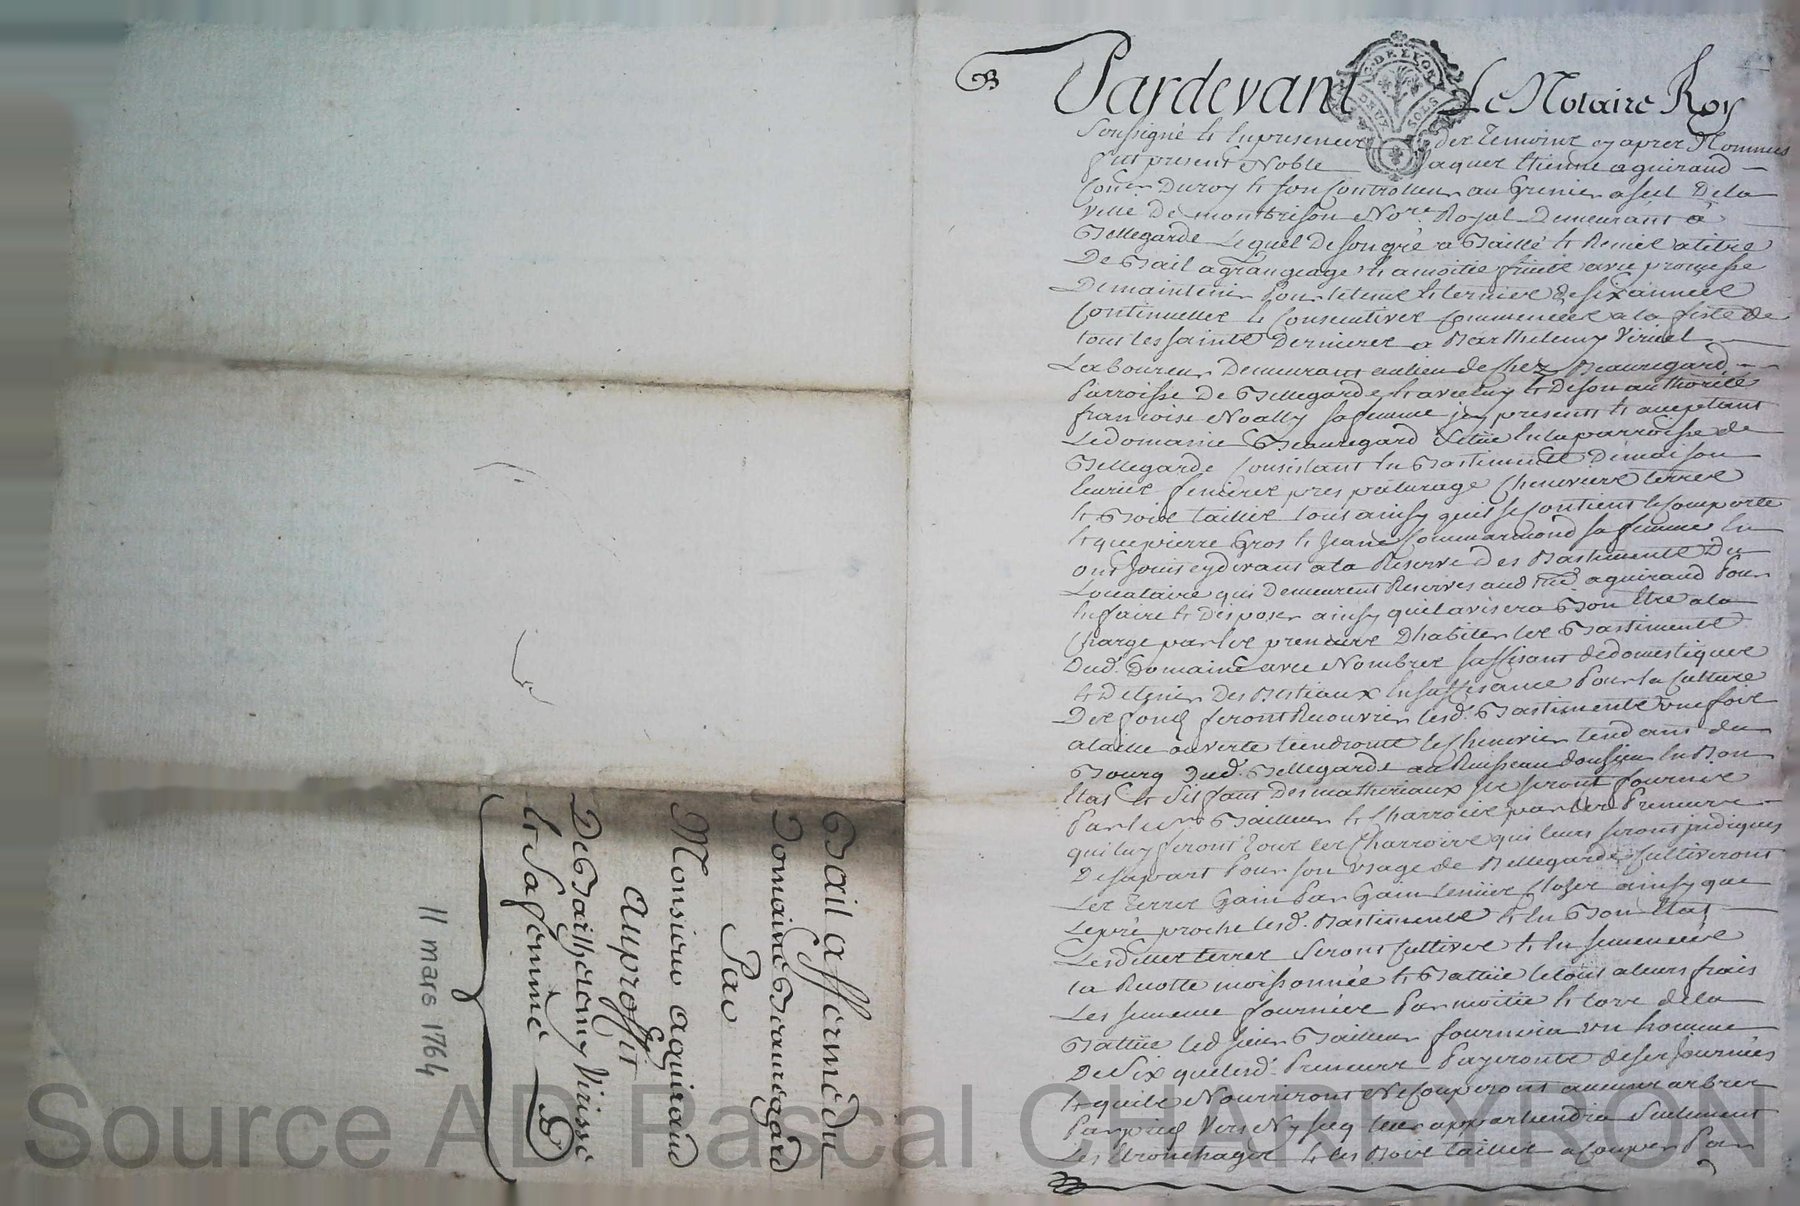 Pardevant Le Notaire Roy
soussigné et en presence des temoins cy apres Nommes
fut present Noble Jaques Etienne aguiraud
Coner Du roy et son Controlleur au Grenier a sel De la
ville De montbrison Nore Royal Demeurant a
Bellegarde Lequel De son gré a Baillé et Remis a titre
De Bail a grangeage et a moitié fruits avec promesse
De maintenir pour le tems et terme de six années
Continuelles et Consecutives Commencées a la feste de
tous les saints Dernieres a Barthelemy Virissel
Laboureur Demeurant au lieu de chez Beauregard
Parroisse De Bellegarde et avec luy et De son authorité
francoise Noally sa femme icy presents et acceptant
Le domaine Beauregard scitué en la parroisse de
Bellegarde Consistant en Bastiments De maison
Ecuries fenieres pres paturage Chenevieres terres
et Bois taillis tout ainsy quil se contient et comporte
et que pierre Gros et Jeanne Commarmond sa femme en
ont Jouis cy devant a la Reserve Des Bastiments Du
Locataire qui Demeurent Reservés aud sr aguiraud Pour
en faire et Disposer ainsy quil avisera Bon Etre a la
Charge par les preneurs D'habiter les Bastiments
Dud. Domaine avec Nombre suffisant de domestiques
et De tenir Des Bestiaux en suffisance Pour la Culture
Des fonds feront Recouvrir lesd. Bastiments une fois
a taille ouverte tiendront le Chemin tendant du
Bourg Dud. Bellegarde au Ruisseau en Bon
Etat et s'il faut Des matheriaux ils seront fournis
Par led. sr Bailleur et Charroiés par les Preneurs
qui luy feront tous les Charrois qui leurs seront indiqués
De sa part Pour son usage de Bellegarde Cultiveront
Les terres Gain Par Gain Closes ainsy que
Le pré proche lesd. Bastiments et en Bon Etat
Lesdittes terres seront Cultivés et en semencées
la Recolte moissonnée et Battue le tout a leurs frais
Les semences fournies Par moitié et lors de la
Battue led sieur Bailleur fournira un homme
De six que lesd. Preneurs Payeront de ses Journées
et quils Nourriront Ne Couperont aucuns arbres
Par pied Vers Ny secq leur appartiendra seulement
Les Ebranchages et les Bois taillis a Couper Par
Bail a fferme du
Domaine Beauregard
Par
Monsieur aguiraud
au proffit
De Barthelemy Virissel
et sa femme
11 mars 1764
G. DE LYON
DEUX SOLS
Source AD Pascal CHAREYRON